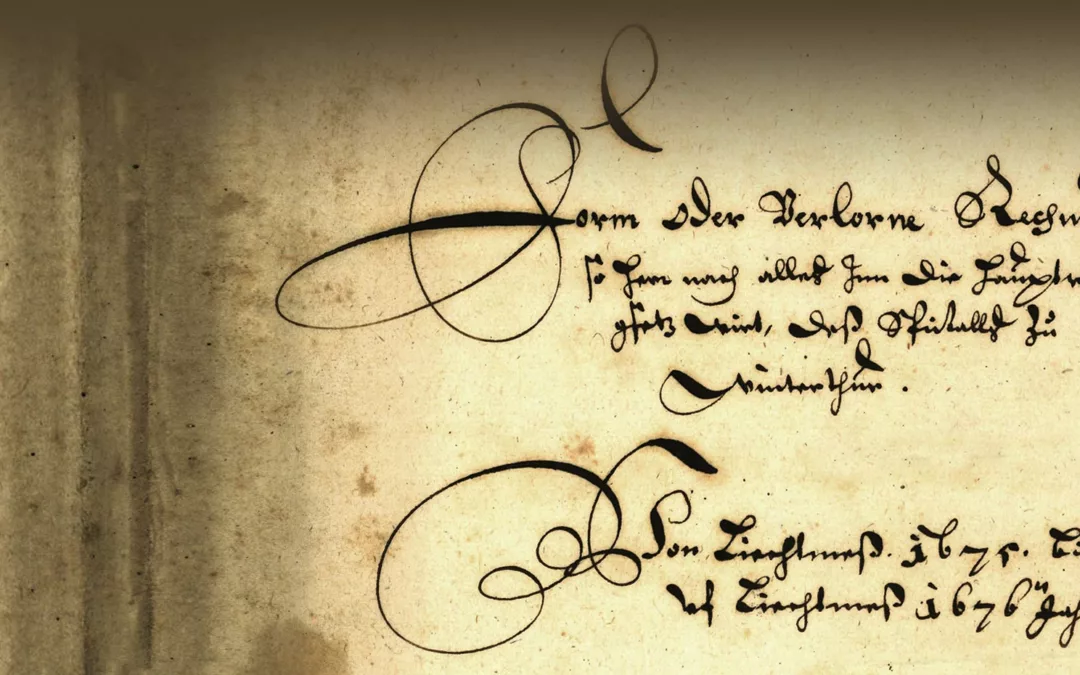 Form oder Verlorne Rechn
so hern nach alles Inn die haupt
gsetz wirt, deß Spitalls zu
Winterthur.
Von Liechtmeß. 1675. bi
vf Liechtmeß 1676 Jah